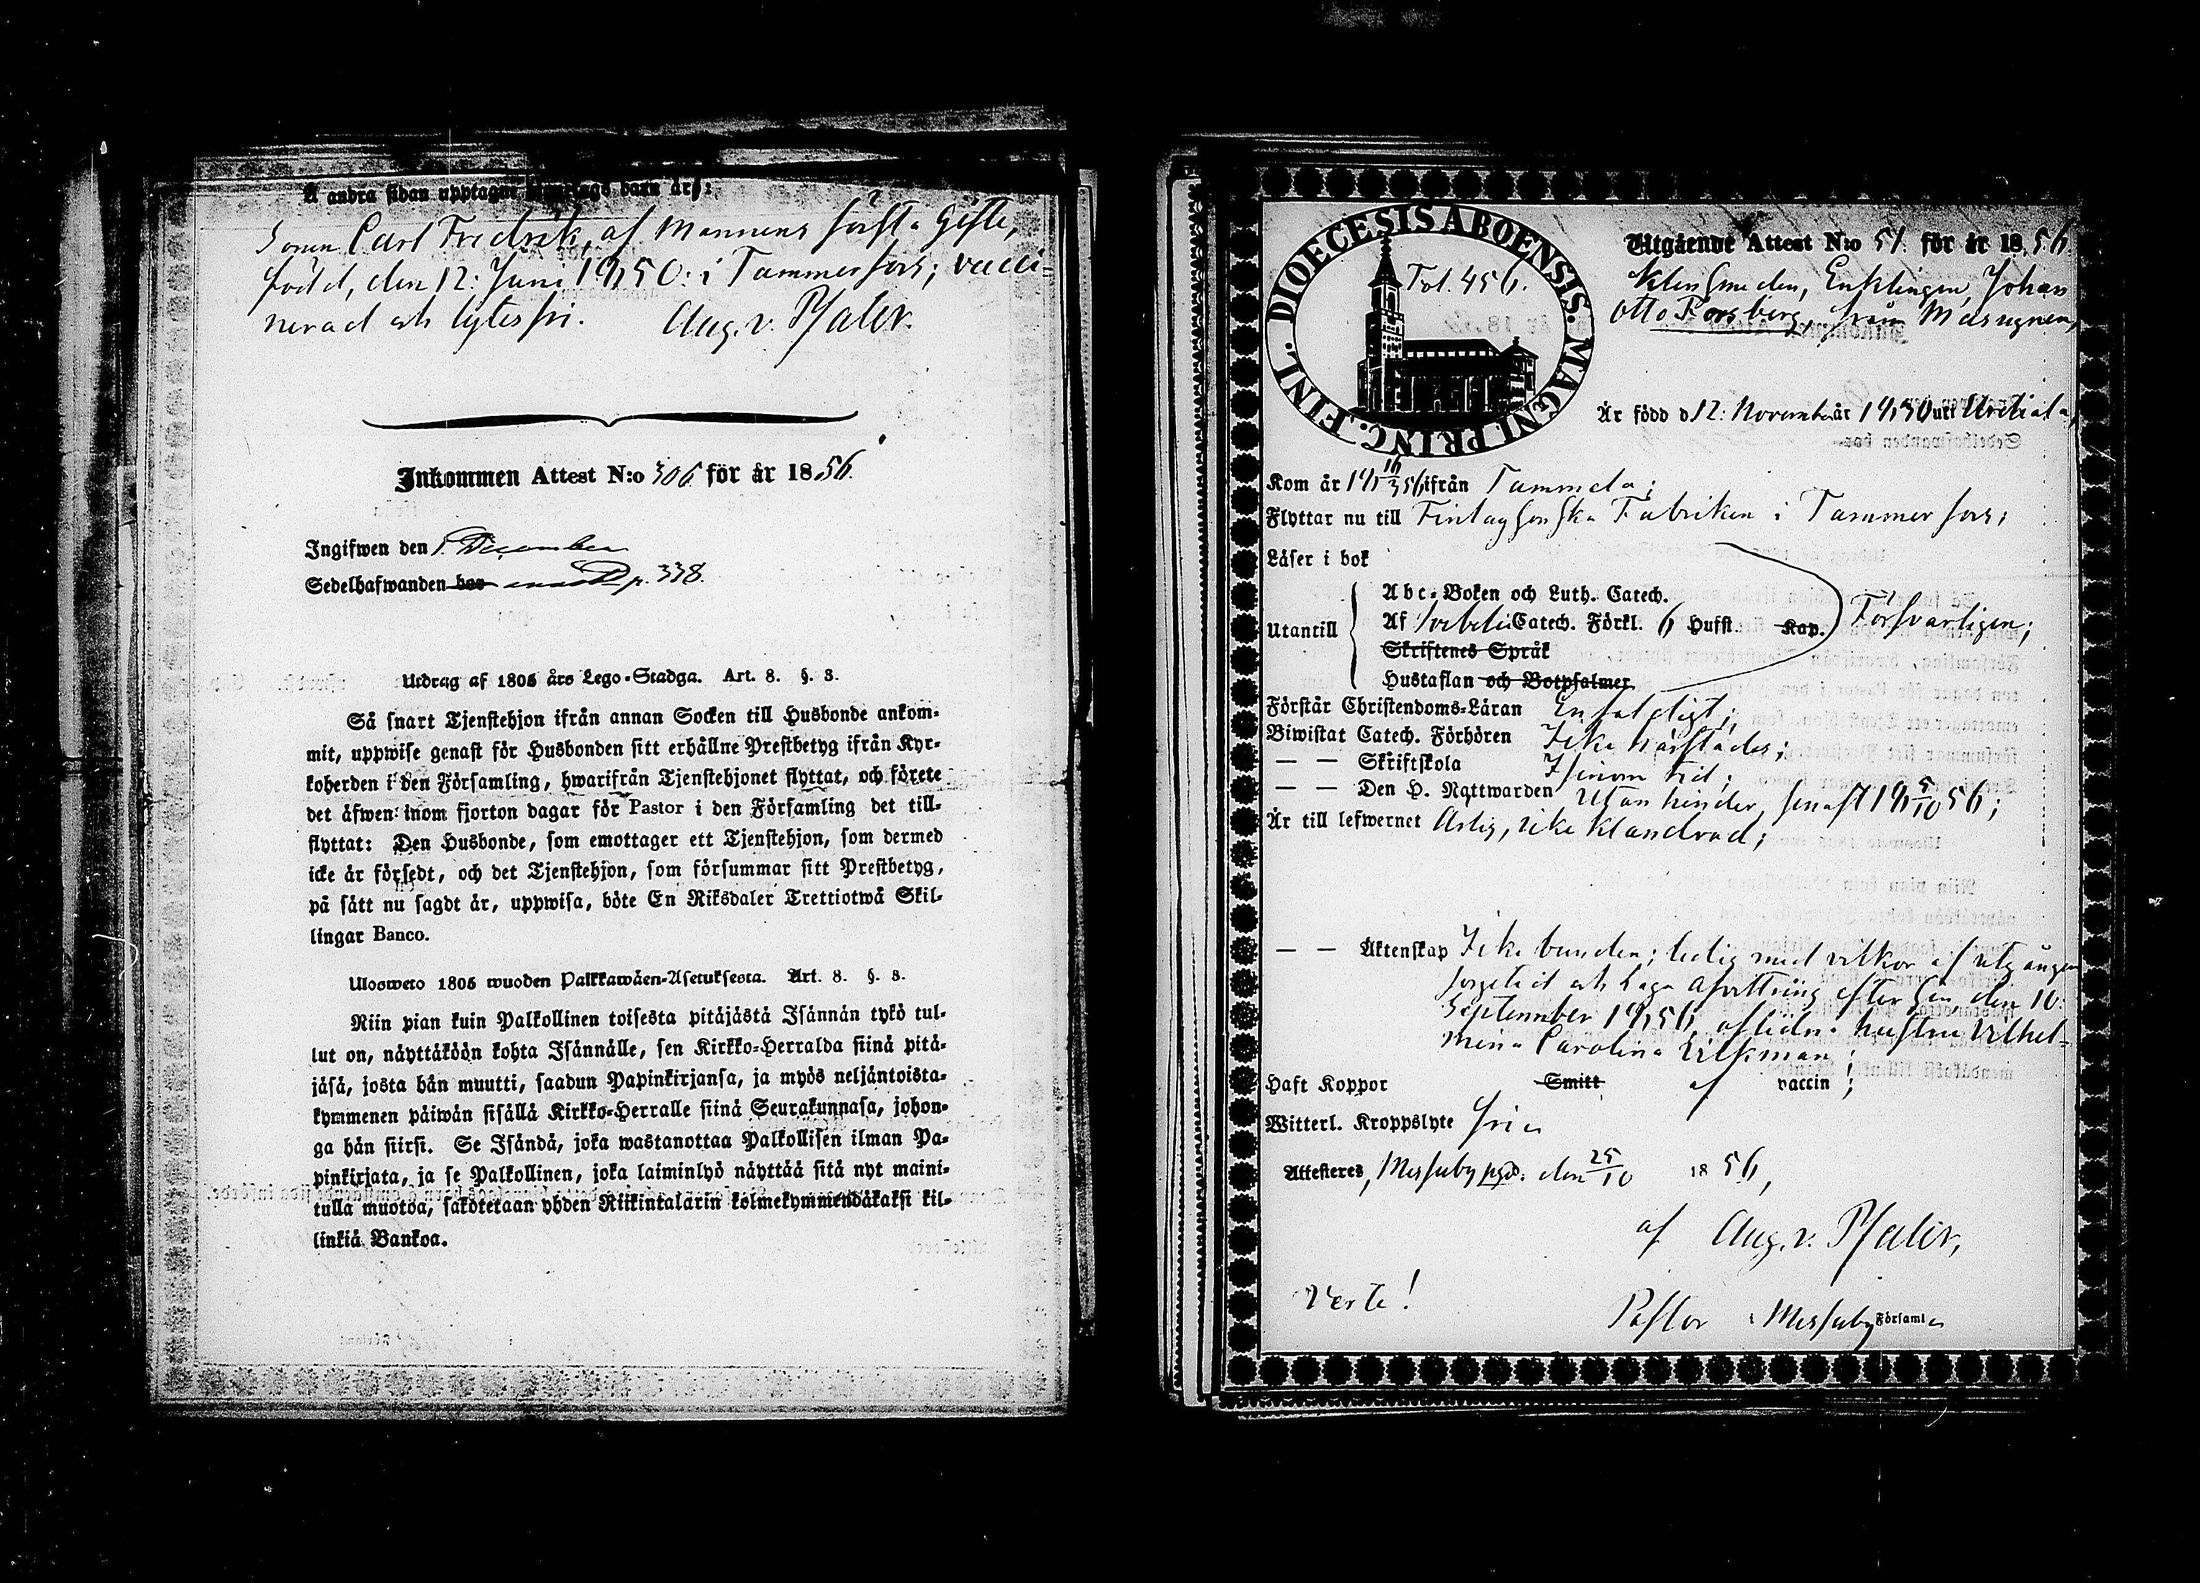 Å andra sidan upptagne barn är:
Sonen Carl Fredrik, af Mannens första Gifte,
född, den 12: Juni 1850: i Tammerfors; vacci=
nerad och lytesfri. Aug. v. Pfaler.
Inkommen Attest N:o 306 för år 1856.
Ingifwen den 1 December
Sedelhafwanden har p. 338.
Utdrag af 1805 års Lego-Stadga. Art. 8. §. 3.
Så snart Tjenstehjon ifrån annan Socken till Husbonde ankom-
mit, uppwise genast för Husbonden sitt erhållne Prestbetyg ifrån Kyr-
koherden i den Församling, hwarifrån Tjenstehjonet flyttat, och förete
det äfwen inom fjorton dagar för Pastor i den Församling det till-
flyttat: Den Husbonde, som emottager ett Tjenstehjon, som dermed
icke är försedt, och det Tjenstehjon, som försummar sitt Prestbetyg,
på sätt nu sagdt är, uppwisa, böte En Riksdaler Trettiotwå Skil-
lingar Banco.
Ulosweto 1805 wuoden Palkkawäen-Asetuksesta. Art. 8. §. 3.
Niin pian kuin Palkollinen toisesta pitäjästä Isännän tykö tul-
lut on, näyttäköön kohta Isännälle, sen Kirkko-Herralda siinä pitä-
jäsä, josta hän muutti, saadun Papinkirjansa, ja myös neljäntoista-
kymmenen päiwän sisällä Kirkko-Herralle siinä Seurakunnasa, johon-
ga hän siirsi. Se Isändä, joka wastanottaa Palkollisen ilman Pa-
pinkirjata, ja se Palkollinen, joka laiminlyö näyttää sitä nyt maini-
tulla muotoa, sakotetaan yhden Riikintalarin kolmekymmendäkaksi kil-
linkiä Bankoa.
DIOECESIS ABOENSIS. MAGNI PRINC. FINL.
Fol. 456.
Utgående Attest N:o 51 för år 1856.
Klensmeden, Enklingen, Johan
Otto Forsberg, från Masugnen,
Är född d 12: November år 1830 uti Urdiala,
Kom år 18 16/3 56 ifrån Tammela;
Flyttar nu till Finlaysonska Fabriken i Tammerfors;
Läser i bok
Utantill
Abc-Boken och Luth. Catech.
Af Svebelii Catech. Förkl. 6 Hufst. Kap.
Försvarligen;
Skriftenes Språk
Hustaflan och Botpsalmer
Förstår Christendoms-Läran Enfaldigt;
Biwistat Catech. Förhören Icke härstädes;
— — Skriftskola I sinom tid;
— — Den H. Nattwarden Utan hinder, senast 18 5/10 56;
Är till lefwernet Ärlig, icke klandrad;
— — Äktenskap Icke bunden; ledig med vilkor af utgången
sorgetid och laga afvittring efter sin den 10:
September 1856 aflidna hustru Vilhel=
mina Carolina Ekman;
Haft Koppor Smitt af vaccin;
Witterl. Kroppslyte fri
Attesteres, Messuby pgd. den 25/10 1856,
af Aug. v. Pfaler,
Verte!
Pastor i Messuby Församl